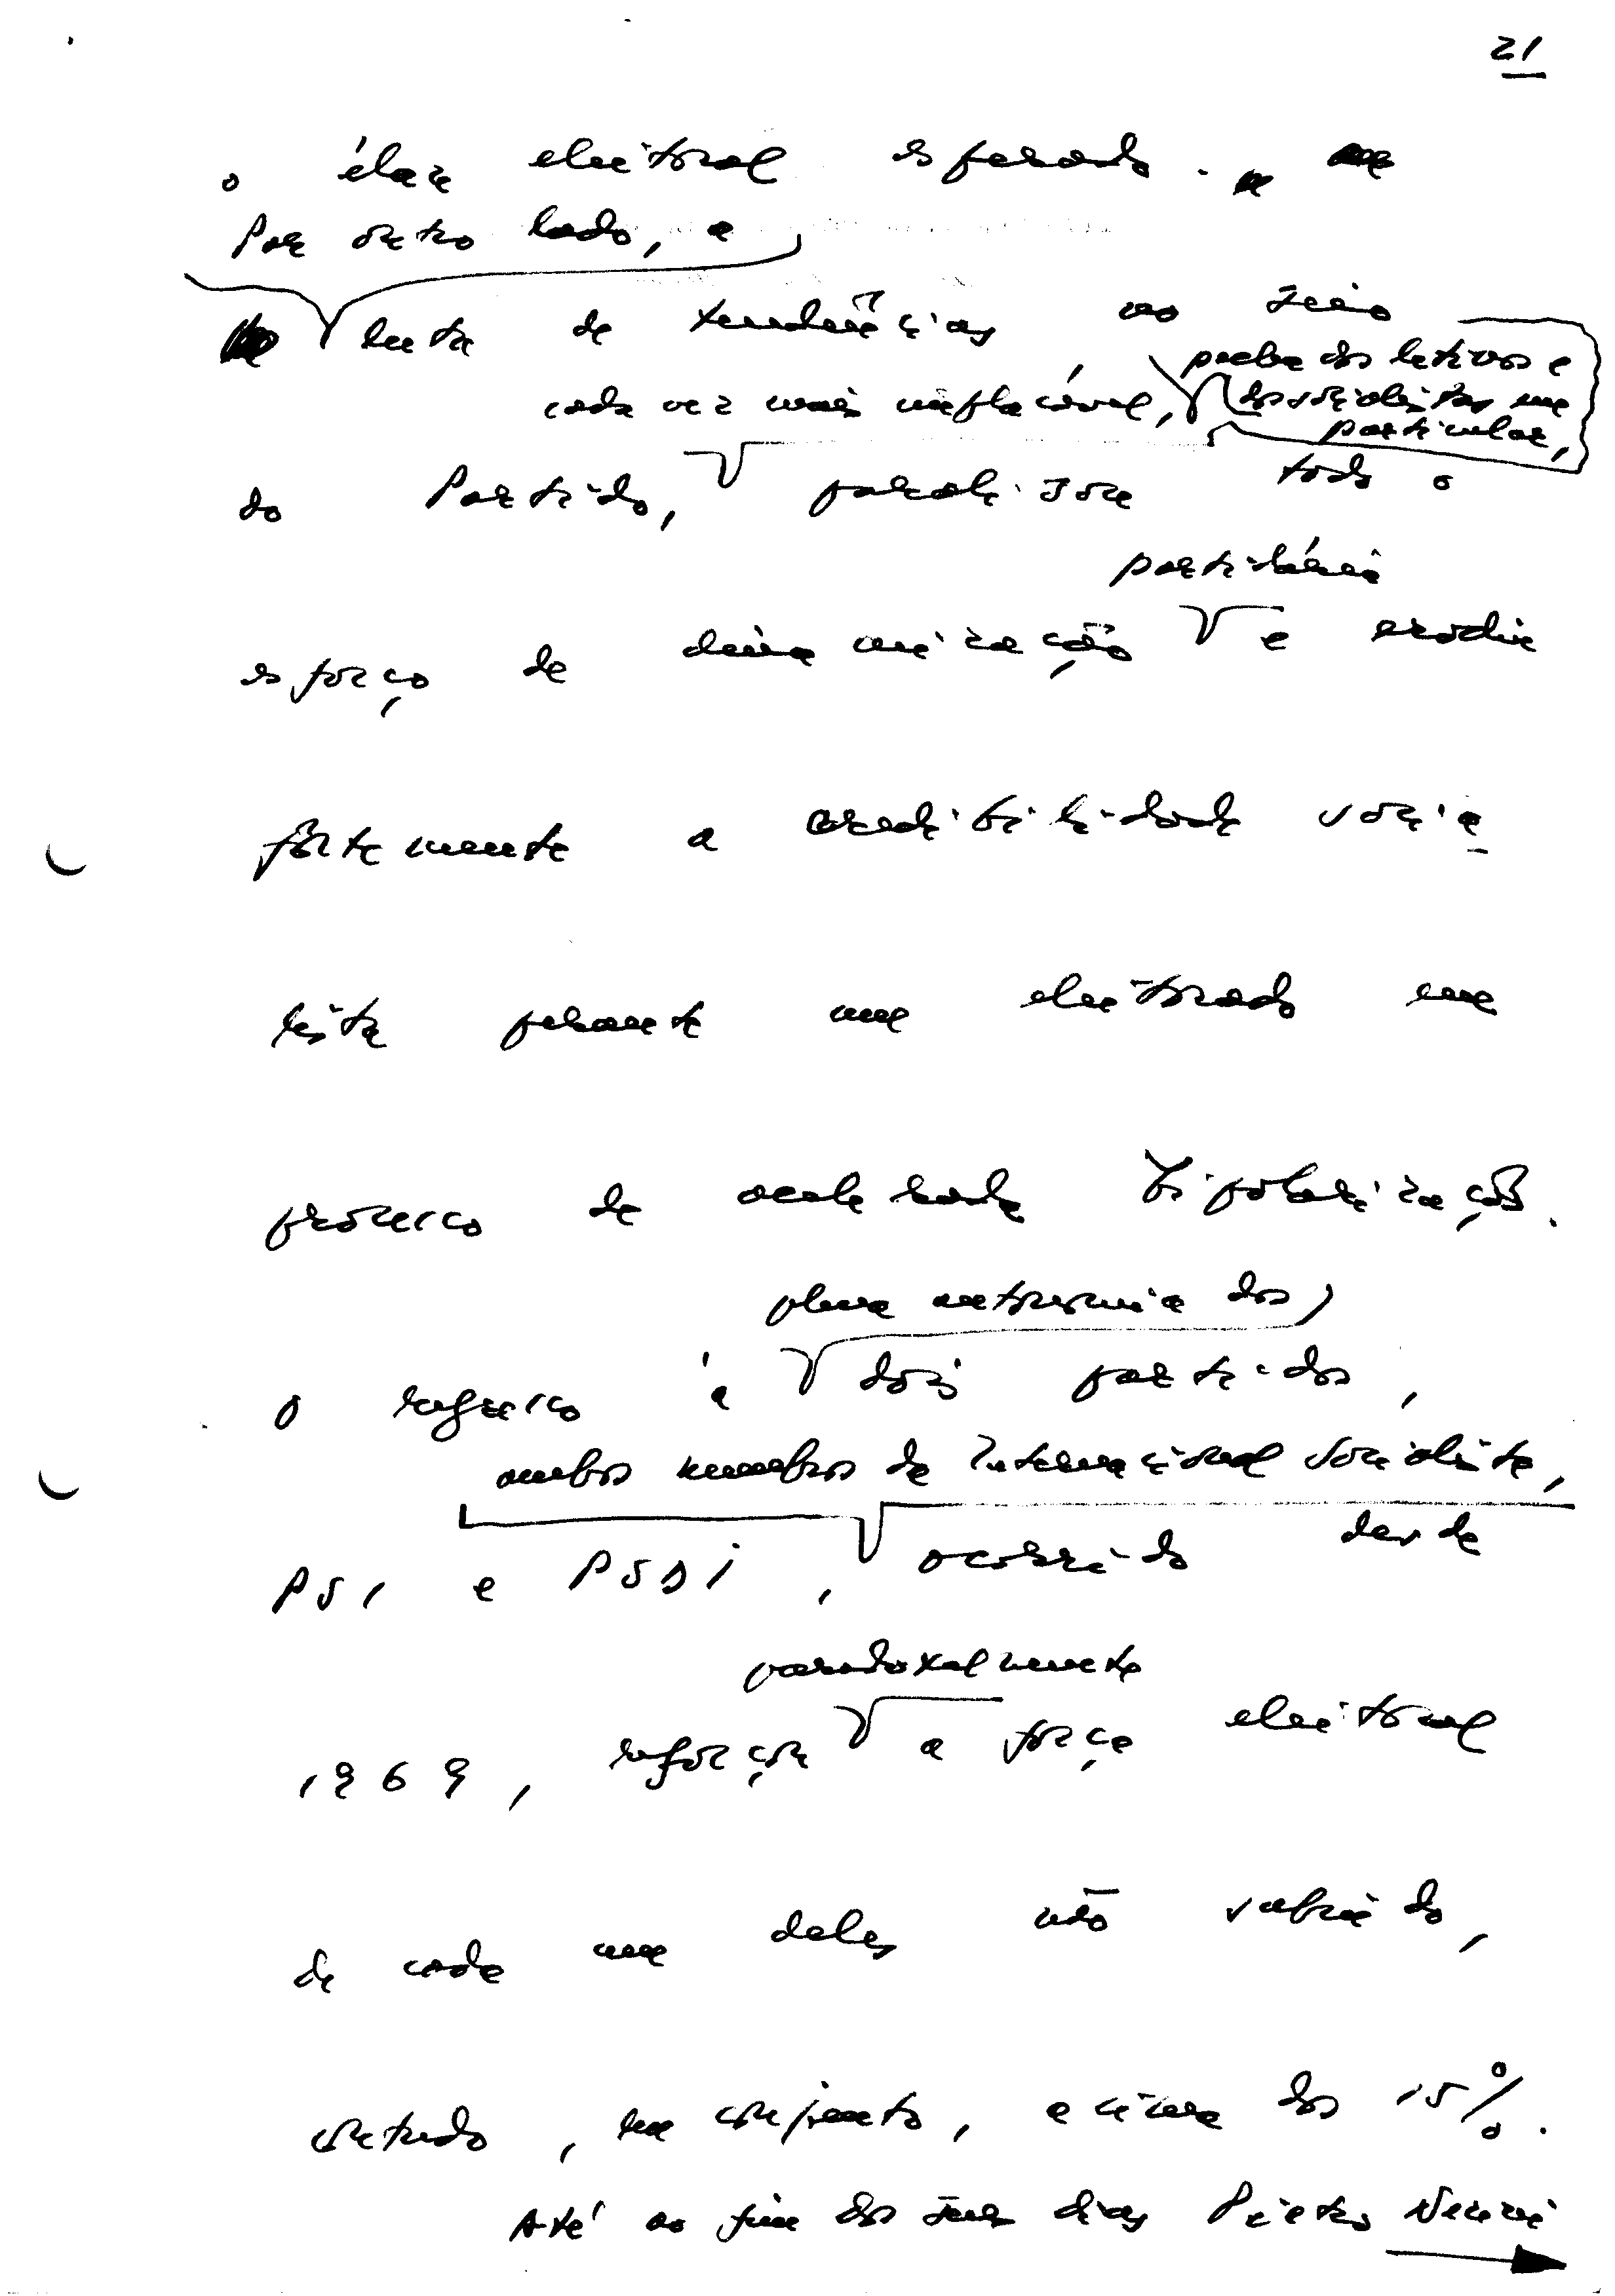 21
o élan eleitoral esperado.
Por outro lado, a
luta de tendências, no seio
cada vez mais implacável,
dos socialistas em
particular,
do Partido, paralisou todo o
partidária
esforço de dinamização e erodiu
fortemente a credibilidade socia
lista perante um eleitorado em
processo de acelerada bipolarização.
plena autonomia dos
O regresso à dois partidos,
ambos membros da Internacional Socialista,
PSI e PSDI, ocorrido desde
paradoxalmente
1969, reforçou a força eleitoral
de cada um deles não subindo,
contudo, em conjunto, acima dos 15%.
Até ao fim dos seus dias Pietro Nenni